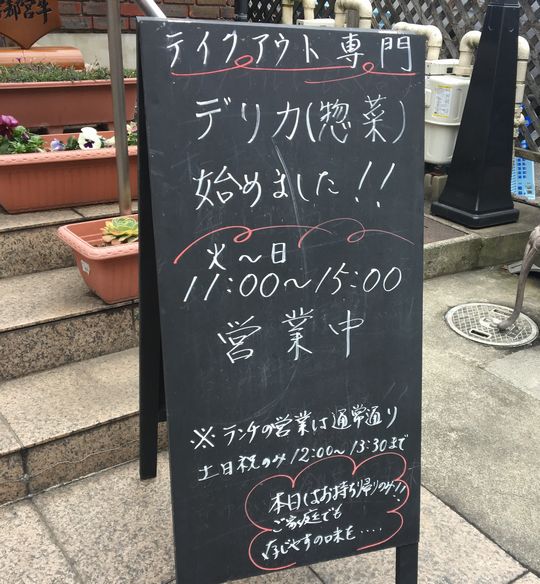 テイクアウト専門
デリカ(惣菜)
始めました!!
火〜日
11:00〜15:00
営業中
※ランチの営業は通常通り
土日祝のみ12:00〜13:30まで
本日はお持ち帰りのみ!!
ご家庭でも
なじやすの味を....